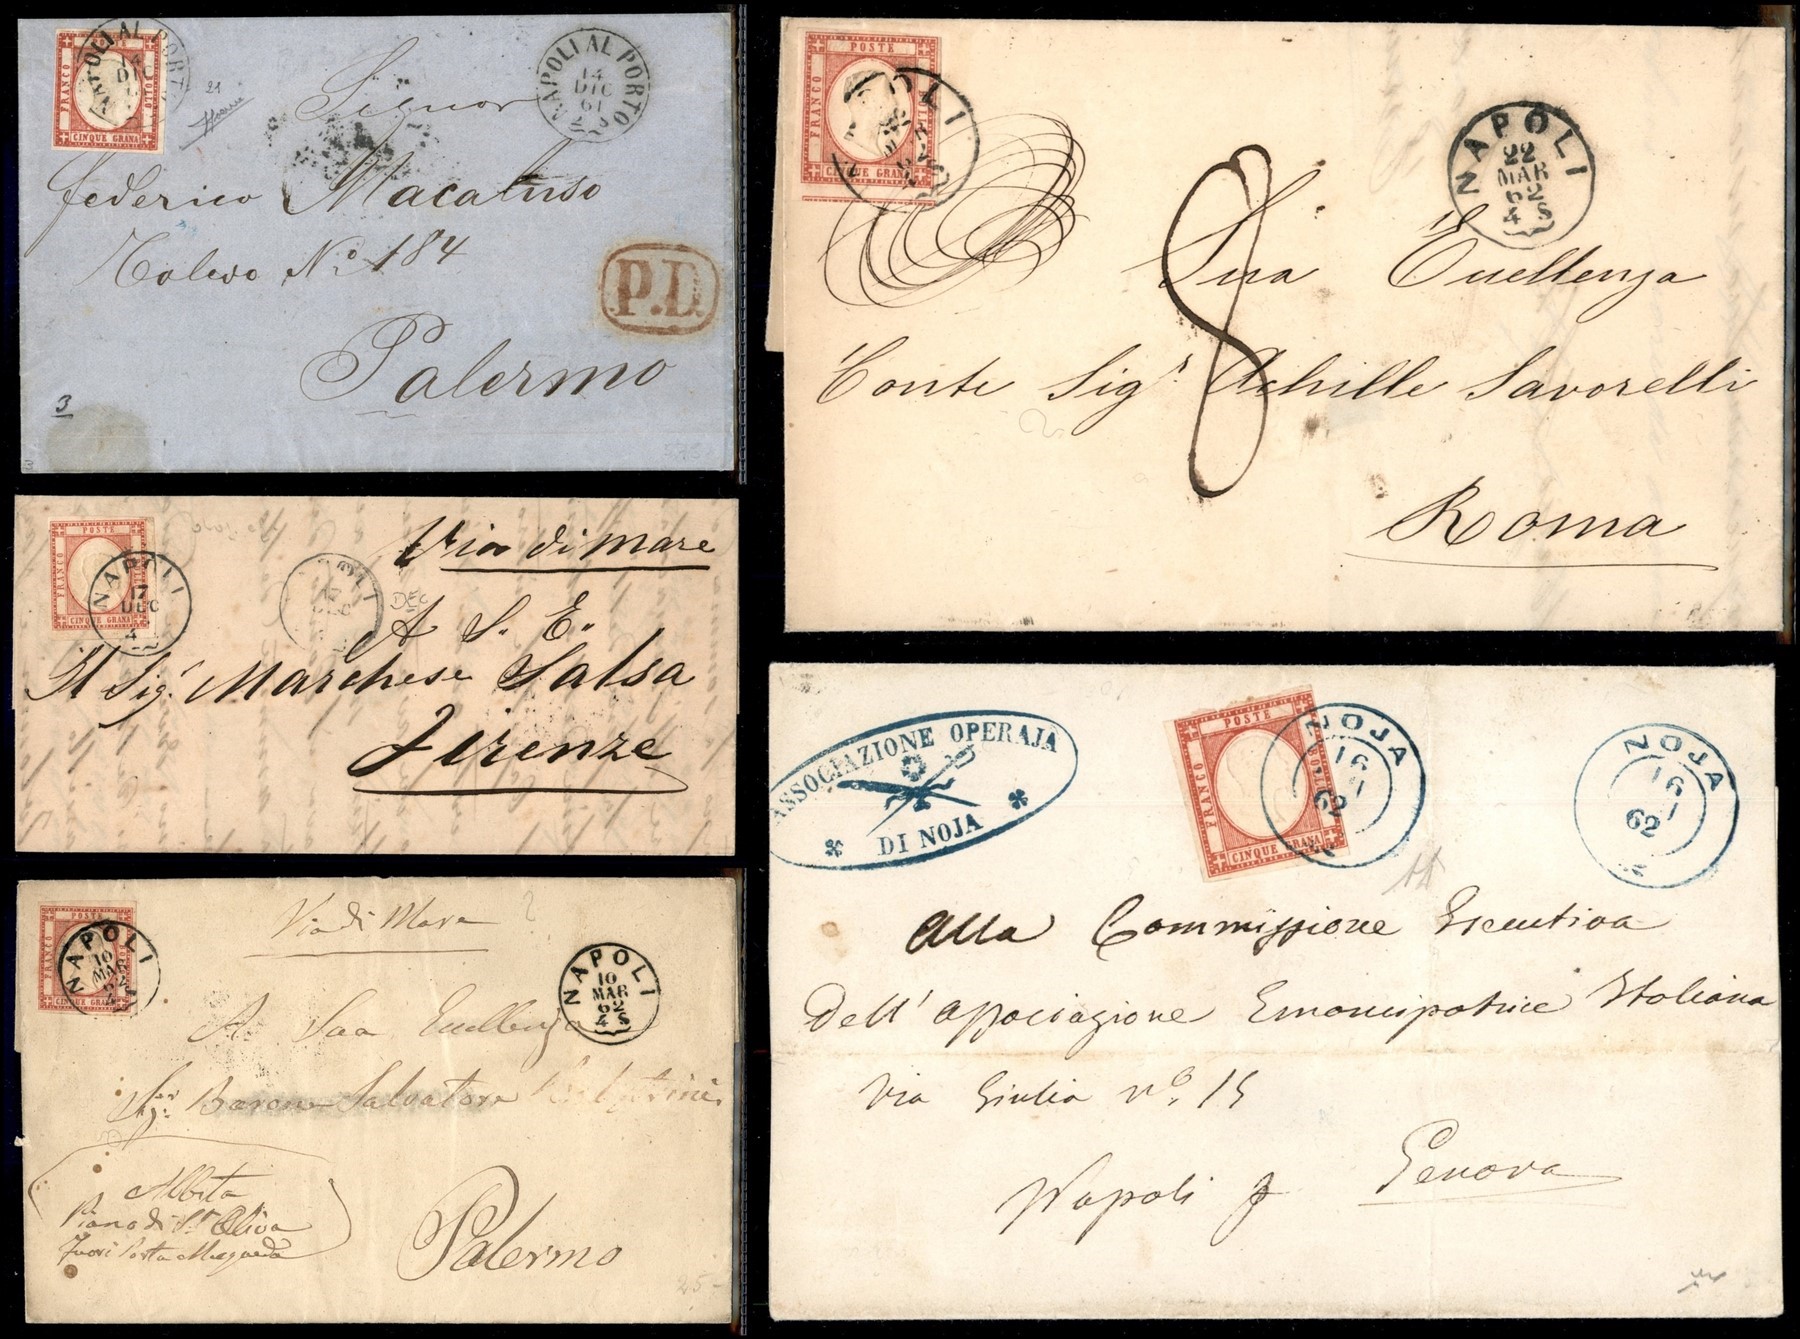 POSTE
FRANCO
OTTO
CINQUE GRANA
NAPOLI AL PORTO
14
DIC
NAPOLI AL PORTO
14
DIC
61
2 S
21
Signor
Federico Macaluso
Toledo N.º 184
P.D.
Palermo
3
POSTE
FRANCO
CINQUE GRANA
NAPOLI
17
DEC
4
DEC
Via di mare
A S. E.
Il Sig.r Marchese Salsa
Firenze
POSTE
FRANCO
CINQUE GRANA
NAPOLI
10
MAR
62
Via di Mare
?
NAPOLI
10
MAR
62
4 S
A Sua Eccellenza
Sig.r Barone Salvatore
Abita
Piano di S.ta Oliva
Fuori Porta Macqueda
Palermo
25-
POSTE
FRANCO
CINQUE GRANA
NAPOLI
22
MAR
62
4 S
8
Sua Eccellenza
Conte Sig.r Achille Savorelli
Roma
ASSOCIAZIONE OPERAJA
DI NOJA
POSTE
FRANCO
BOLLO
CINQUE GRANA
NOJA
16
62
NOJA
16
62
Alla Commissione Esecutiva
Dell'Associazione Emancipatrice Italiana
Via Giulia nº 15
Napoli p Genova